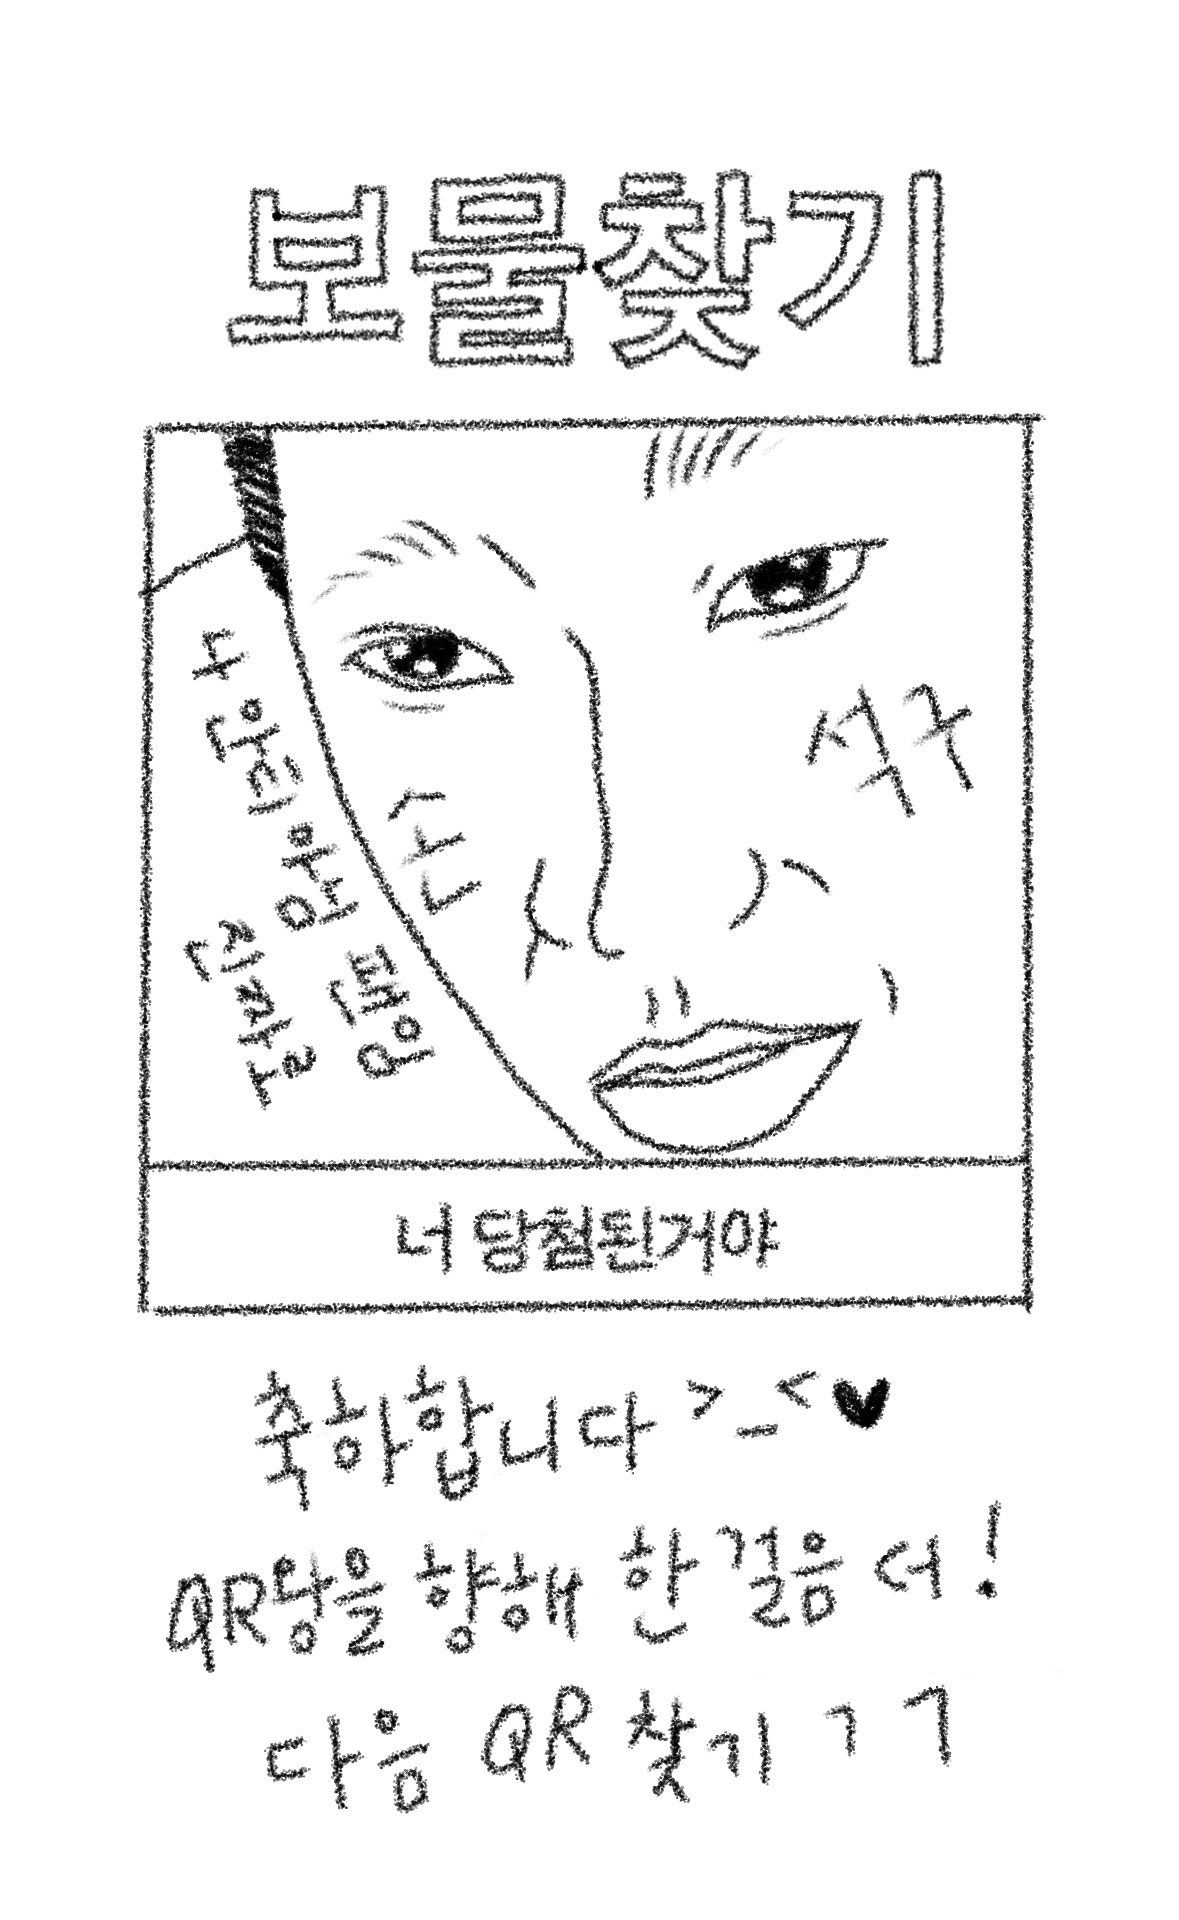 보물찾기
나 안티 아님 팬임
진짜로
손
석구
너 당첨된거야
축하합니다 >_<♥
QR당을 향해 한 걸음 더!
다음 QR 찾기 ㄱㄱ